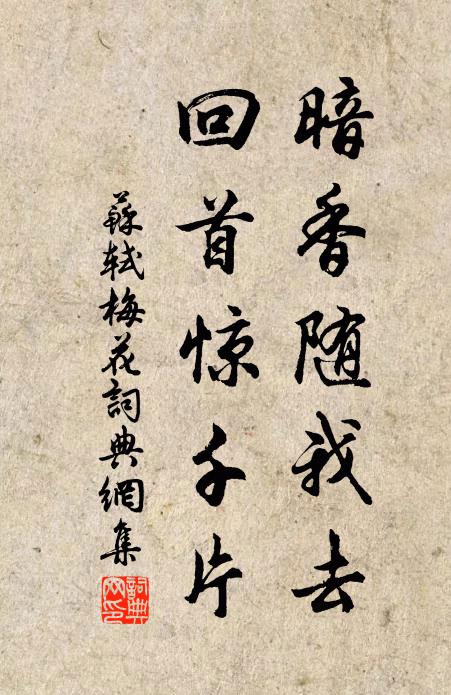 暗香随我去
回首惊千片
蘇轼梅花詞典網集
詞典网印